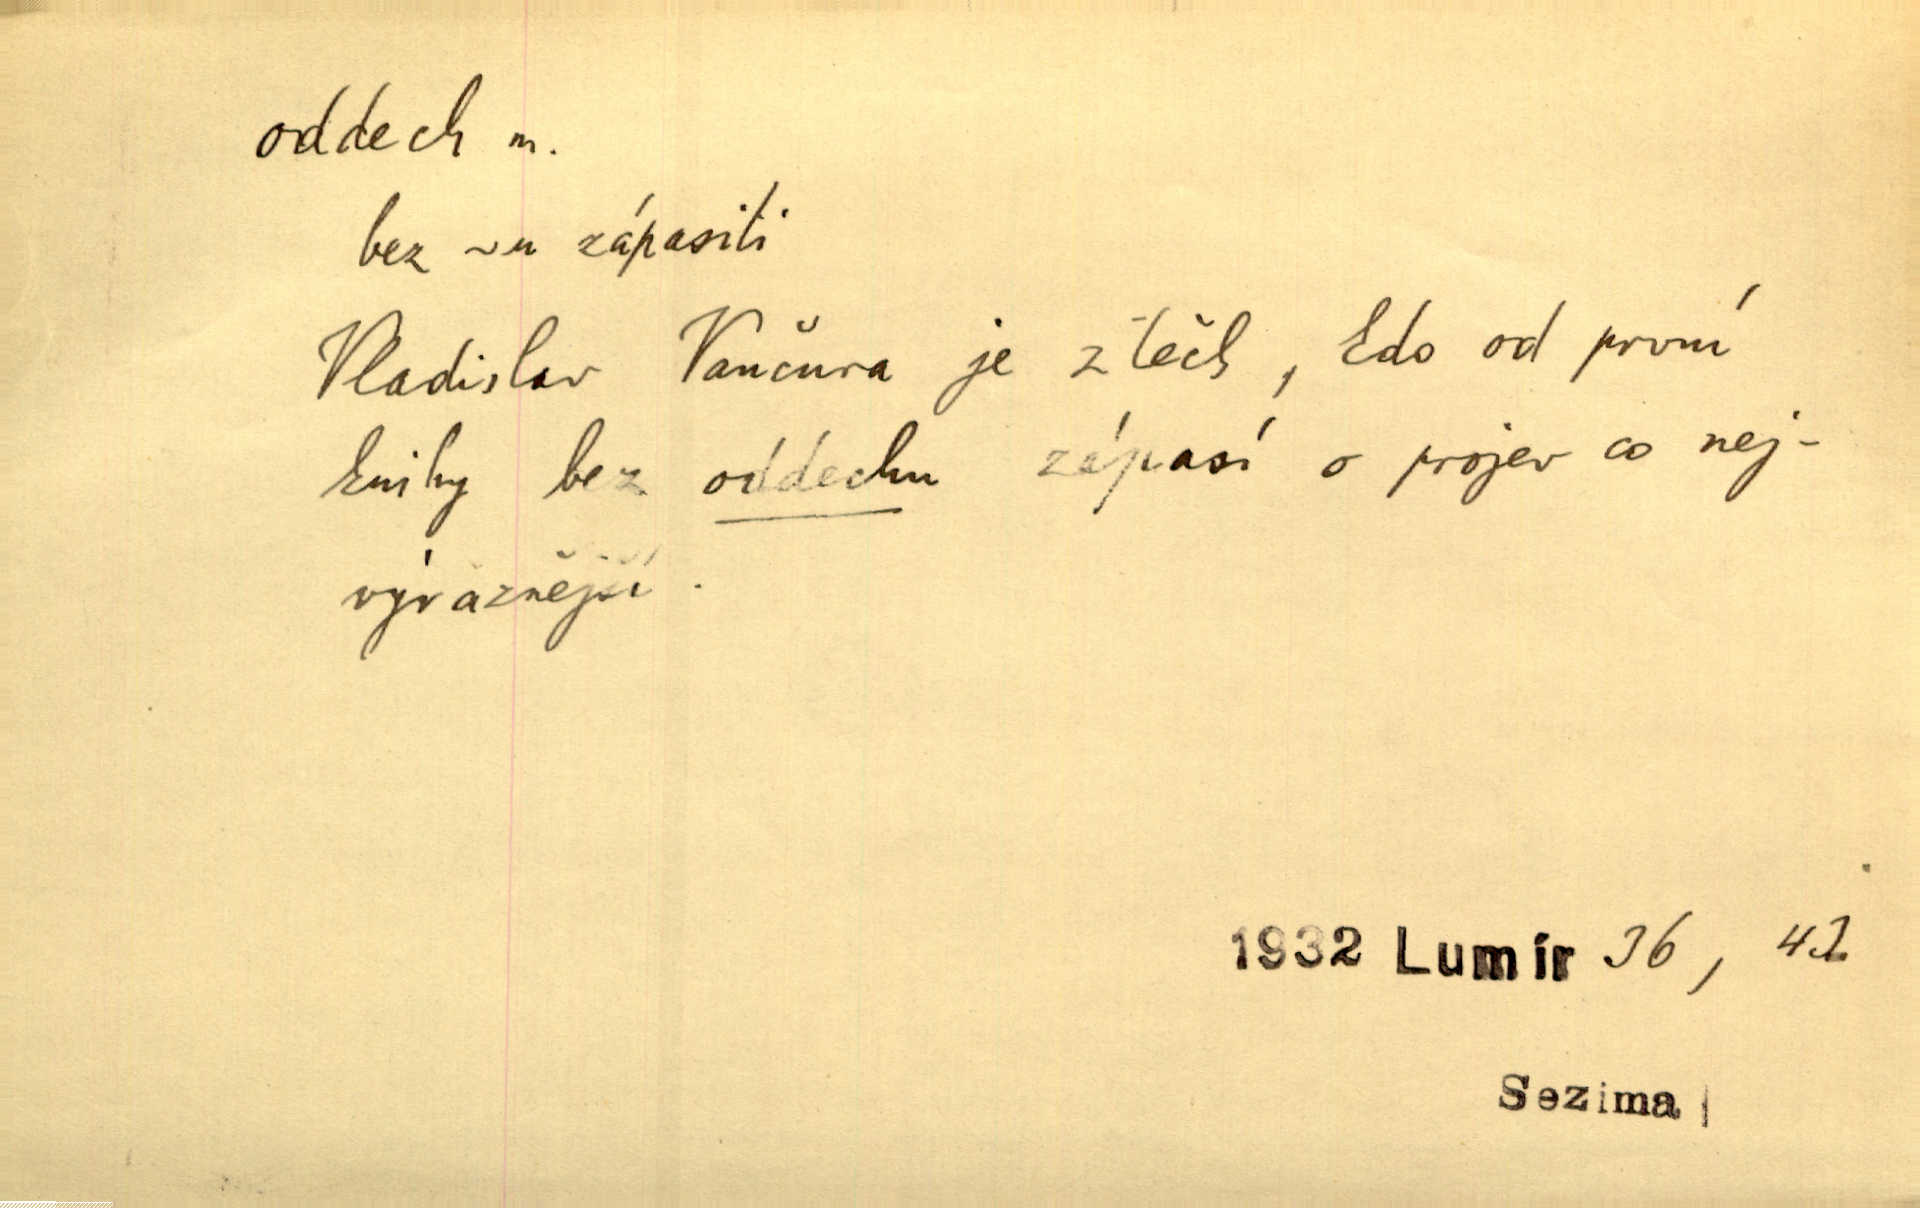 oddech m.
bez ~u zápasiti
Vladislav Vančura je z těch, kdo od první
knihy bez oddechu zápasí o projev co nej-
výraznější.
1932 Lumír 36, 42
Sezima